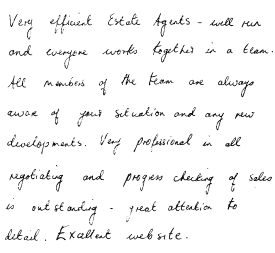 Very efficient Estate Agents - well run
and everyone works together in a team.
All members of the team are always
aware of your situation and any new
developments. Very professional in all
negotiating and progress checking of sales
is outstanding - great attention to
detail. Excellent website.